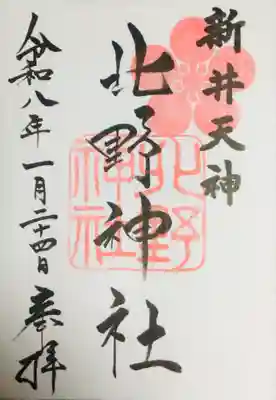 新井天神
北野神社
北野
神社
令和八年一月二十四日奉拝